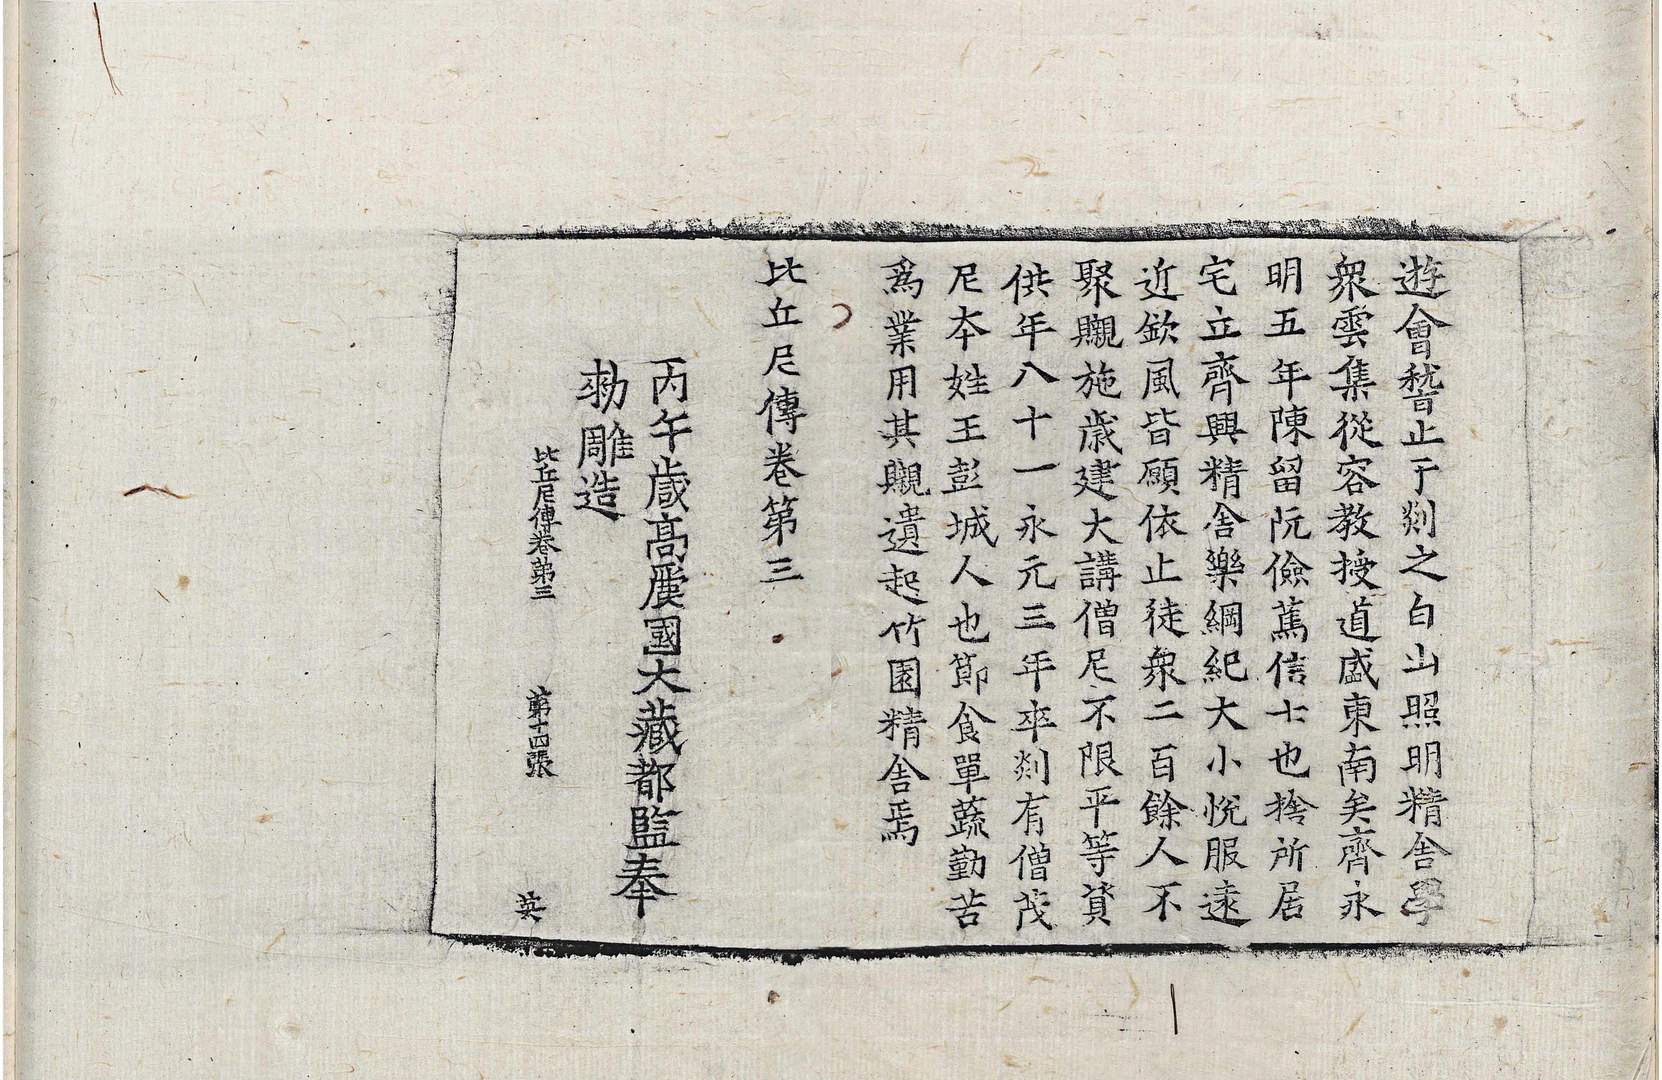 遊會稽止于剡之白山照明精舍學
衆雲集從容教授道盛東南矣齊永
明五年陳留阮儉篤信士也捨所居
宅立齊興精舍樂綱紀大小悅服遠
近欽風皆願依止徒衆二百餘人不
聚䞋施歲建大講僧尼不限平等資
供年八十一永元三年卒剡有僧茂
尼本姓王彭城人也節食單蔬勤苦
爲業用其䞋遺起竹園精舍焉
比丘尼傳卷第三
丙午歲高麗國大藏都監奉
勑雕造
比丘尼傳卷第三 第十四張 英